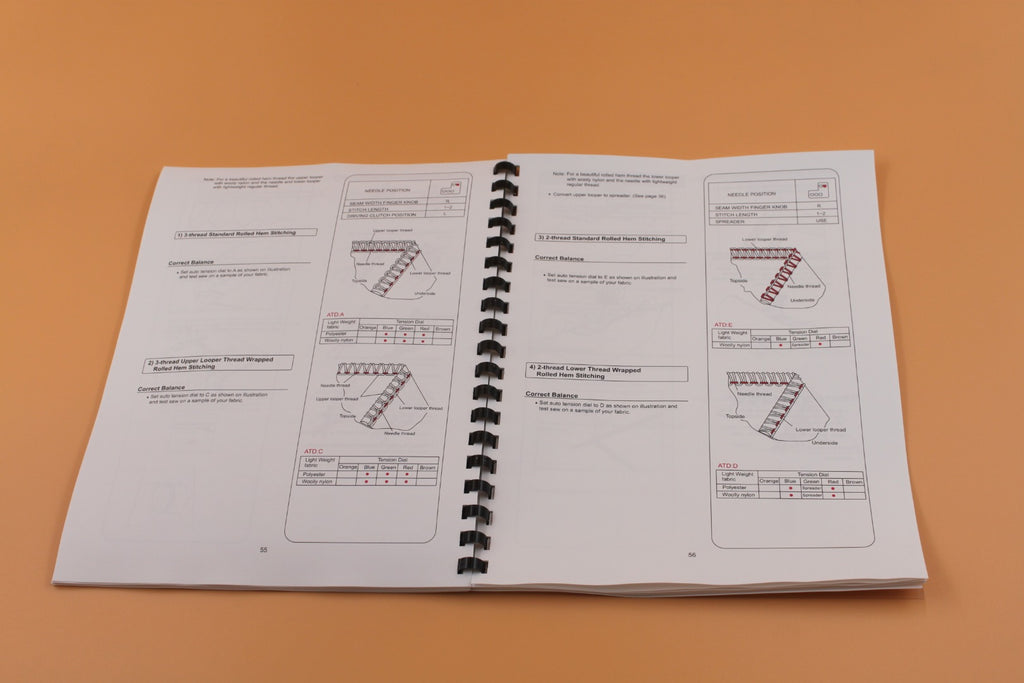 Note: For a beautiful rolled hem thread the upper looper
with wooly nylon and the needle and lower looper
with lightweight regular thread.
1) 3-thread Standard Rolled Hem Stitching
Correct Balance
• Set auto tension dial to A as shown on illustration
and test sew on a sample of your fabric.
2) 3-thread Upper Looper Thread Wrapped
Rolled Hem Stitching
Correct Balance
• Set auto tension dial to C as shown on illustration
and test sew on a sample of your fabric.
NEEDLE POSITION
SEAM WIDTH FINGER KNOB R
STITCH LENGTH 1~2
DRIVING CLUTCH POSITION L
Upper looper thread
Needle thread
Lower looper thread
Topside
Underside
ATD:A
Light Weight fabric Tension Dial
Orange Blue Green Red Brown
Polyester • • •
Woolly nylon • • •
Needle thread
Upper looper thread
Lower looper thread
Topside
Needle thread
ATD:C
Light Weight fabric Tension Dial
Orange Blue Green Red Brown
Polyester • • •
Woolly nylon • • •
55
Note: For a beautiful rolled hem thread the lower looper
with wooly nylon and the needle with lightweight
regular thread.
• Convert upper looper to spreader. (See page 36)
3) 2-thread Standard Rolled Hem Stitching
Correct Balance
• Set auto tension dial to E as shown on illustration
and test sew on a sample of your fabric.
4) 2-thread Lower Thread Wrapped
Rolled Hem Stitching
Correct Balance
• Set auto tension dial to D as shown on illustration and
test sew on a sample of your fabric.
NEEDLE POSITION
SEAM WIDTH FINGER KNOB R
STITCH LENGTH 1~2
SPREADER USE
Lower looper thread
Topside
Needle thread
Underside
ATD:E
Light Weight fabric Tension Dial
Orange Blue Green Red Brown
Polyester
Woolly nylon • Spreader •
Needle thread
Topside
Lower looper thread
Underside
ATD:D
Light Weight fabric Tension Dial
Orange Blue Green Red Brown
Polyester • Spreader •
Woolly nylon • Spreader •
56